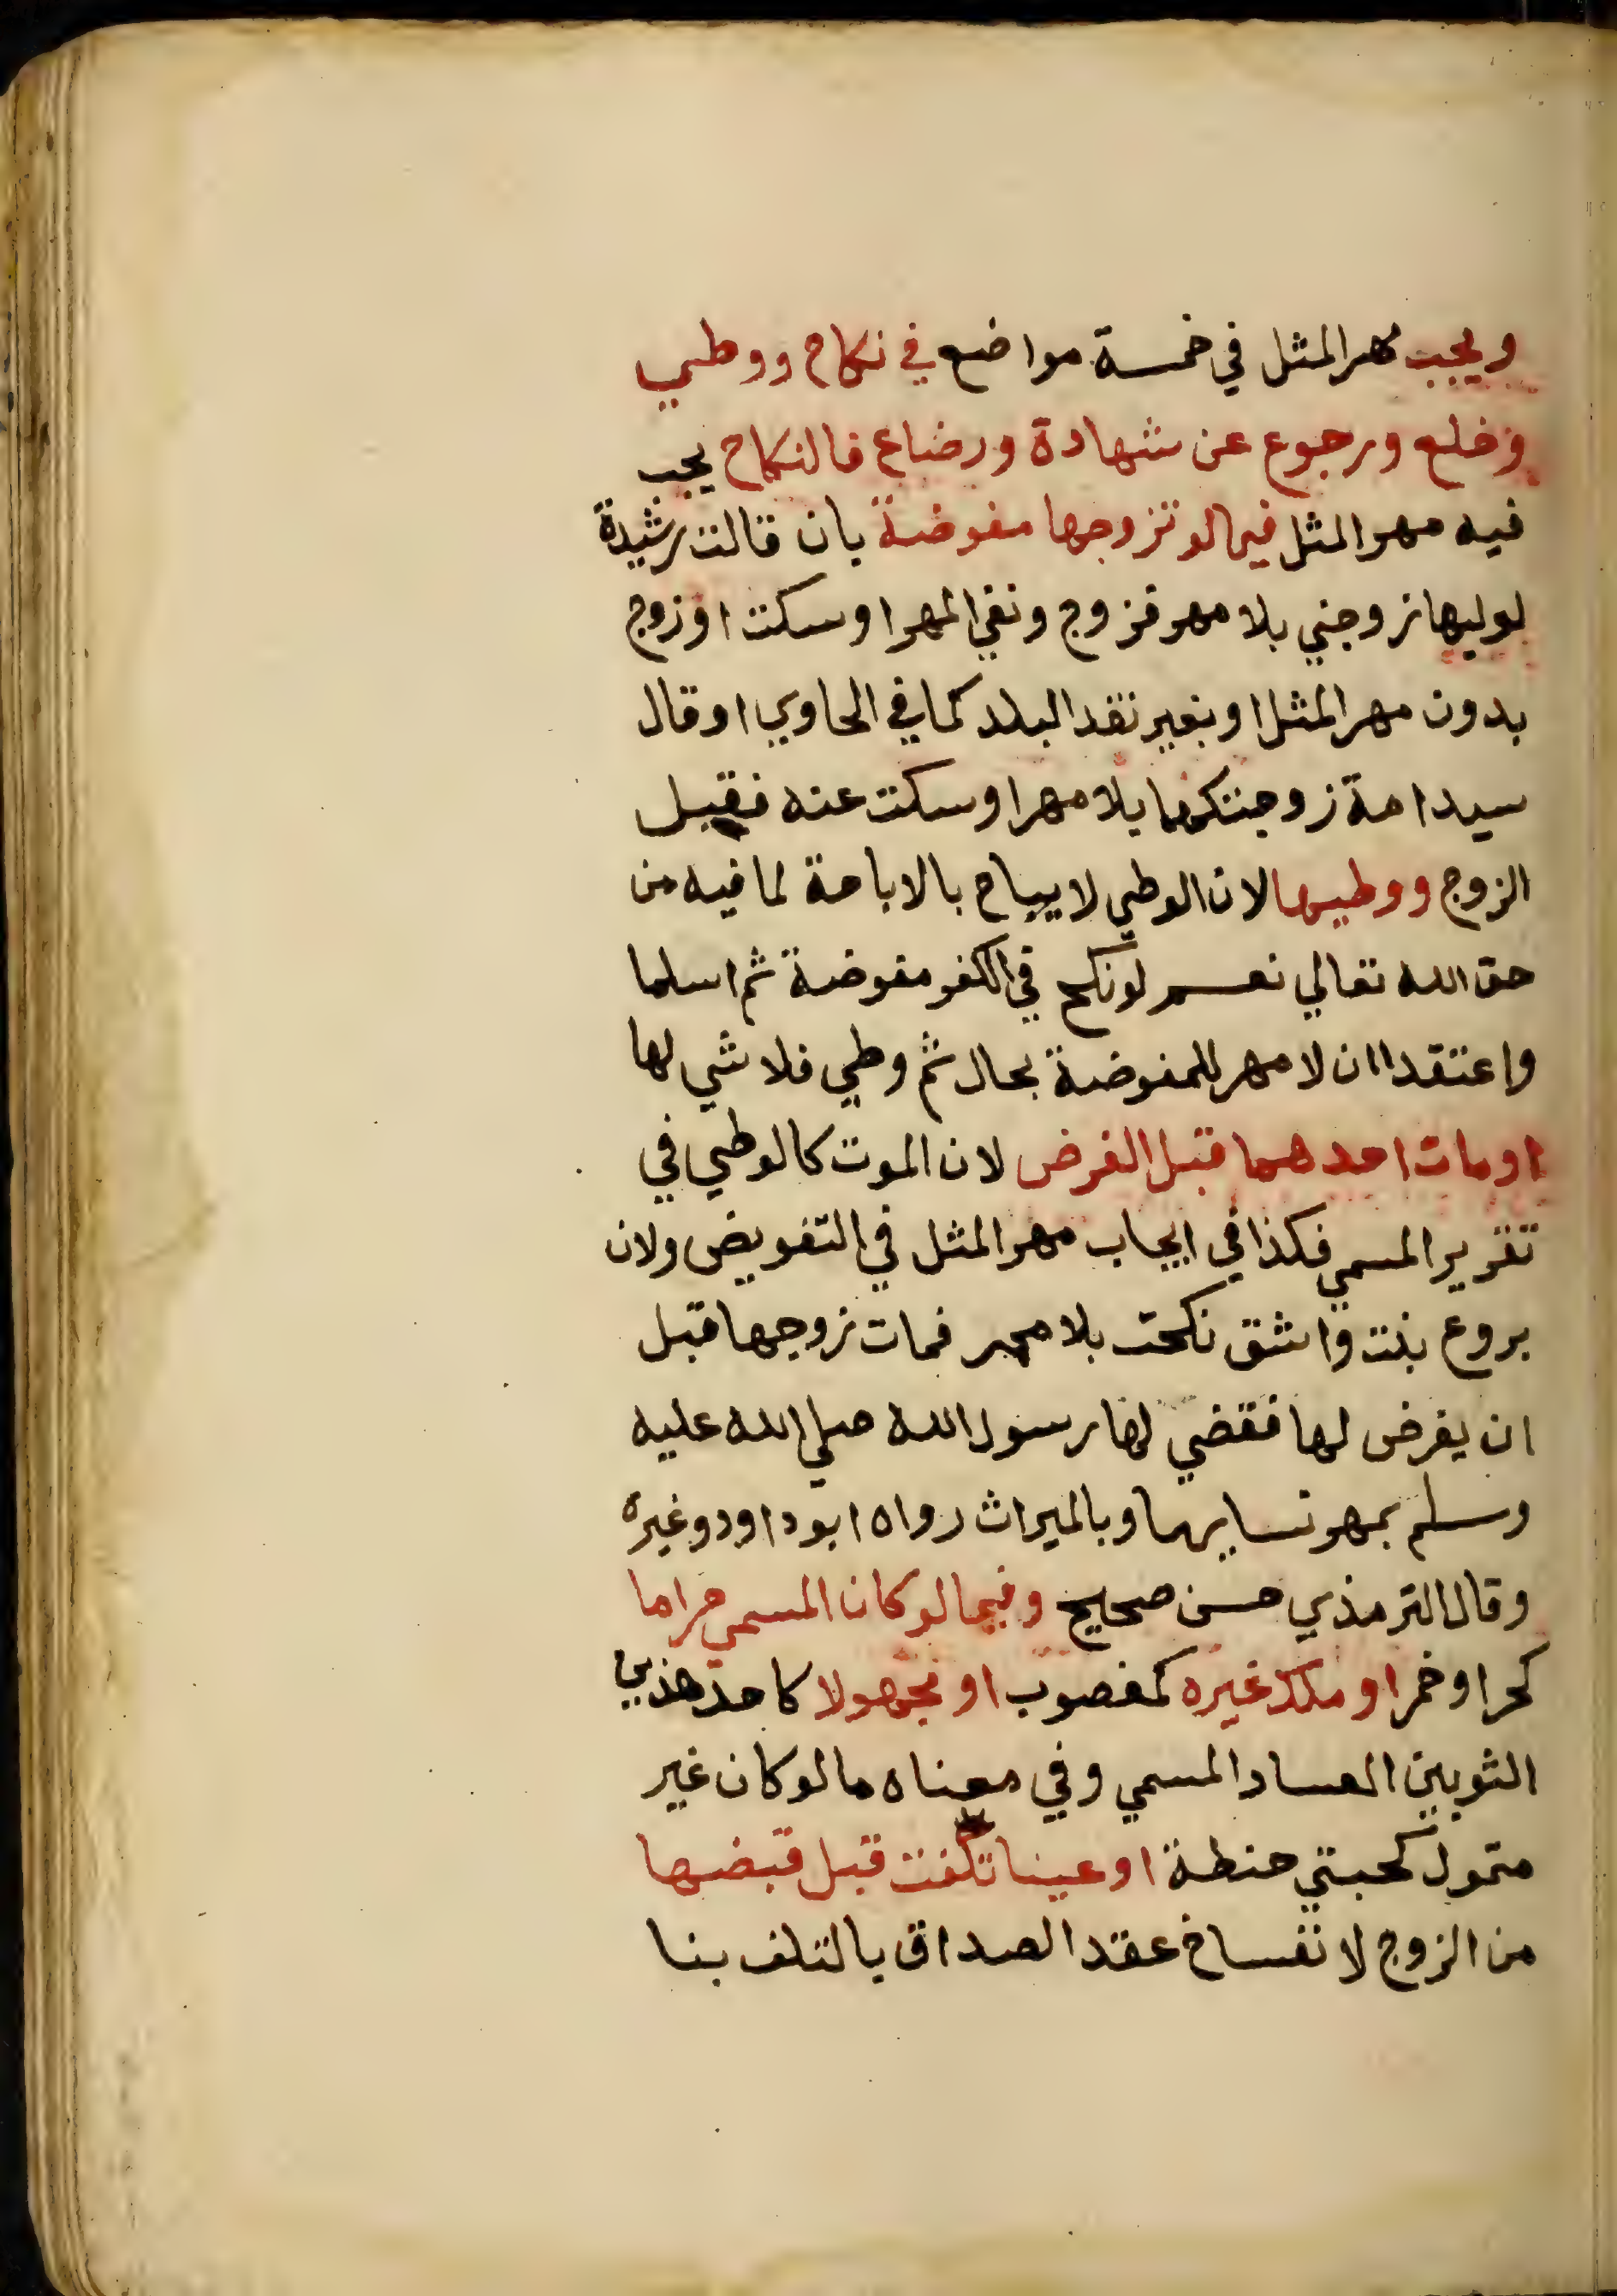 ويجب مهر المثل في خمسة مواضع في نكاح ووطي
وخلع ورجوع عن شهادة ورضاع فالنكاح يجب
فيه مهر المثل فيما لو تزوجها مفوضة بان قالت رشيدة
لوليها زوجني بلا مهر فزوج ونفي المهر او سكت او زوج
بدون مهر المثل او بغير نقد البلد كما في الحاوي او قال
سيد امة زوجتكها بلا مهر او سكت عنه فقبل
الزوج ووطيها لان الوطي لا يباح بالاباحة لما فيه من
حق الله تعالي نعم لو نكح في الكفر مفوضة ثم اسلما
واعتقدا ان لا مهر للمفوضة بحال ثم وطي فلا شي لها
او مات احدهما قبل الفرض لان الموت كالوطي في
تقرير المسمي فكذا في ايجاب مهر المثل في التفويض ولان
بروع بنت واشق نكحت بلا مهر فمات زوجها قبل
ان يفرض لها فقضي لها رسول الله صلي الله عليه
وسلم بمهر نسايها وبالميراث رواه ابو داود وغيره
وقال الترمذي حسن صحيح وفيما لو كان المسمي حراما
كحر او خمر او ملك غيره كمغصوب او مجهولا كاحد هذين
الثوبين لفساد المسمي وفي معناه ما لو كان غير
متمول كحبتي حنطة او عينا تلفت قبل قبضها
من الزوج لانفساخ عقد الصداق بالتلف بنا